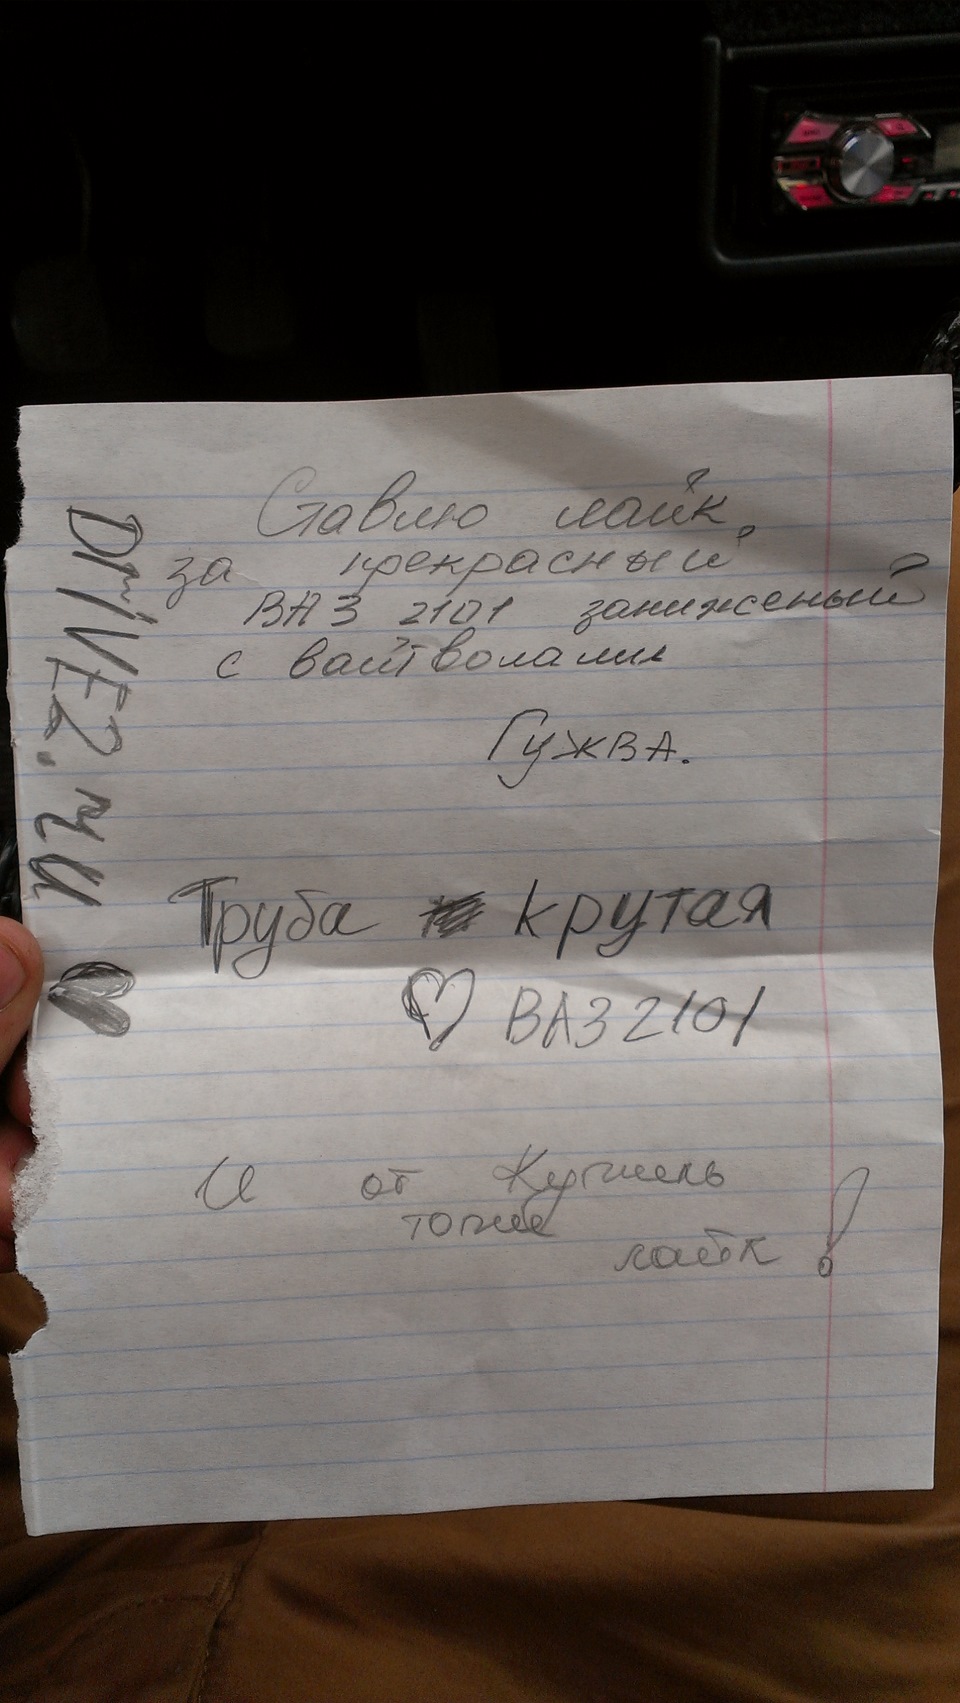 Ставлю лайк,
за прекрасный
ВАЗ 2101 заниженый
с вайтволами
Гужва.
Труба крутая
♡ ВАЗ 2101
И от
тоже
лайк!
DriVE2.ru